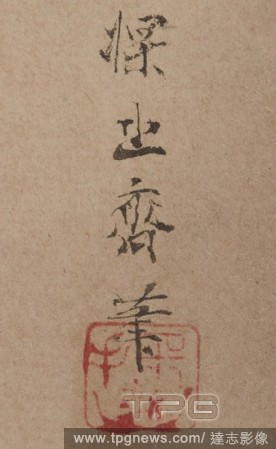 之齋筆
TPG
www.tpgnews.com/ 達志影像